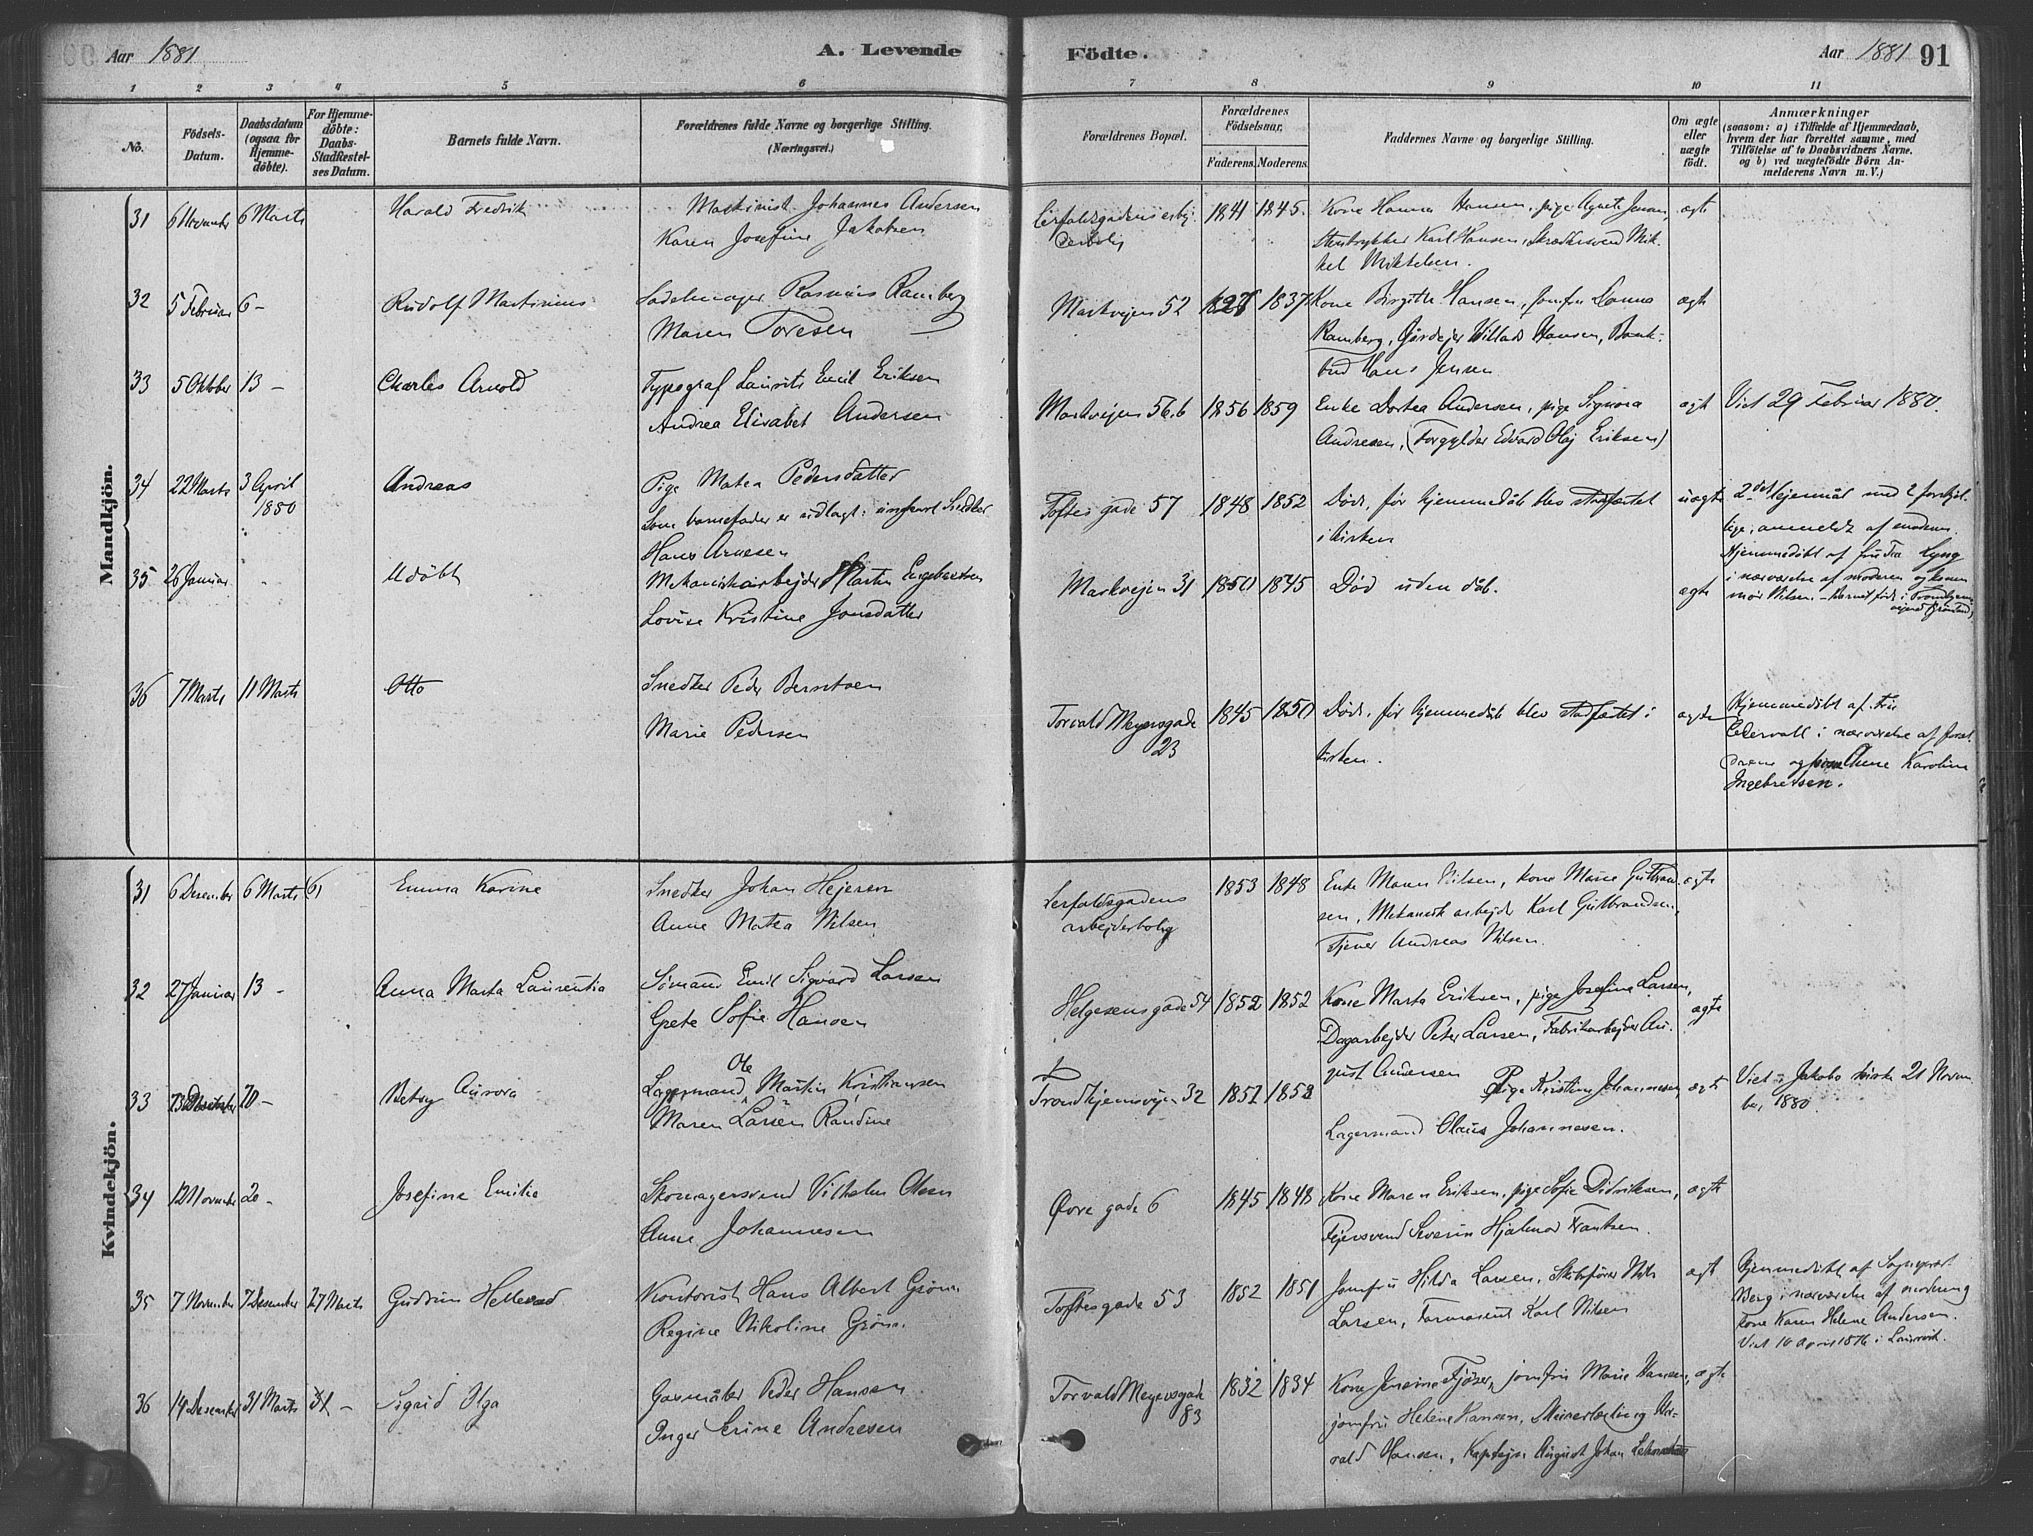 Aar 1881. A. Levende
Födte. Aar 1881 91
1 2 3 4 5 6 7 8 9 10 11
No.
Födsels-Datum.
Daabsdatum (ogsaa for Hjemmedöbte).
For Hjemmedöbte: Daabs-Stadfæstelses Datum.
Barnets fulde Navn.
Forældrenes fulde Navne og borgerlige Stilling. (Næringsvei.)
Forældrenes Bopæl.
Forældrenes Födselsaar,
Faderens. Moderens.
Faddernes Navne og borgerlige Stilling.
Om ægte eller uægte födt.
Anmærkninger
(saasom: a) i Tilfælde af Hjemmedaab, hvem der har forrettet samme, med Tilföielse af to Daabsvidners Navne. og b) ved uægtefödte Börn Anmelderens Navn m. V.)
Mandkjön.
31 6 November 6 Marts Harald Fredrik Maskinist Johannes Andersen 1841 1845. Kone Hanna Hansen, pige Agnete Jensen, ægte
Karen Josefine Jakobsen Stentrykker Karl Hansen, Skræddersvend Mik-
kel Mikkelsen.
32 5 Februar 6 - Rudolf Martinius Sadelmager Rasmus Ramberg Markvejen 52 1837 Kone Birgitte Hansen, jomfru Hanna ægte
Maren Toresen Ramberg, Gårdejer Willads Hansen, Bank-
bud Hans Jensen
33 5 Oktober 13 - Charles Arnold Typograf Laurits Emil Eriksen Markvejen 56.b 1856 1859 Enke Dortea Andersen, pige Signora ægte Viet 29 Februar 1880.
Andrea Elisabet Andersen Andresen, (Forgylder Edvard Olaj Eriksen)
34 22 Marts 3 April 1880 Andreas Pige Matea Pedersdatter Toftes gade 57 1848 1852 Død, før hjemmedåb blev stadfæstet uægte 2det lejermål med 2 forskjel-
Som barnefader er udlagt: ungkarl Snedker i kirken lige, anmeldt af moderen
Hans Arnesen Hjemmedøbt af fru Lyng
35 26 Januar Udøbt Mekaniskarbejder Martin Engebretsen Markvejen 31 1850 1845 Død uden dåb. ægte i nærværelse af moderen og
Lovise Kristine Jonsdatter mor Nilsen - Barnet født i
36 7 Marts 11 Marts Otto Snedker Peder Berntsen Torvald Meyersgade 23 1845 1850 Død, før hjemmedåb blev stadfæstet i ægte Hjemmedøbt af fru
Marie Pedersen kirken. Cedervall i nærværelse af foræl-
drene og pige Anne Karoline
Ingebretsen.
Kvindekjön.
31 6 Desember 6 Marts 6/ Emma Karine Snedker Johan Hejersen Lerfaldsgadens arbejderbolig 1853 1848 Enke Maren Nilsen, kone Marie Gulbrand- ægte
Anne Matea Nilsen sen, Mekanisk arbejder Karl Gulbrandsen,
Tjener Andreas Nilsen.
32 27 Januar 13 - Anna Marta Laurentia Sømand Emil Sigvard Larsen Helgesens gade 54 1852 1852 Kone Marta Eriksen, pige Josefine Larsen, ægte
Grete Sofie Hansen Dagarbejder Peter Larsen, Fabrikarbejder Au-
gust Andersen
33 20 - Betsy Aurora Ole Martin Kristiansen Trondhjemsvejen 32 1852 Pige Kristine Johannesen, ægte Viet i Jakobs kirke 21 Novem
Maren Larsen Randine Lagermand Olaus Johannesen. ber 1880.
34 12 November 20 - Josefine Emilie Skomagersvend Vilhelm Olsen Øvre gade 6 1845 1848 Kone Maren Eriksen, pige Sofie Didriksen, ægte
Anne Johannesen Severin Hjalmar Frantsen.
35 7 November 7 Desember 27 Marts Gudrun Hellesad Kontorist Hans Albert Grøn Toftesgade 53 1852 1851 Jomfru Hilda Larsen, Skibsfører Nils ægte Hjemmedøbt af Sogneprest
Regine Nikoline Grøn. Larsen, Farmaseut Karl Nilsen Berg i nærværelse af moderen og
kone Karen Helene Andersen.
Viet 10 April 1876 i Laurvik.
36 14 Desember 31 Marts 31 - Sigrid Olga Gasmåler Peder Hansen Torvald Meyersgade 83 1832 1834 Kone Jensine Fjøser, jomfru Marie Hansen, ægte
Inger Serine Andresen jomfru Helene Hansen, Har-
ald Hansen, Kaptejn August Johan